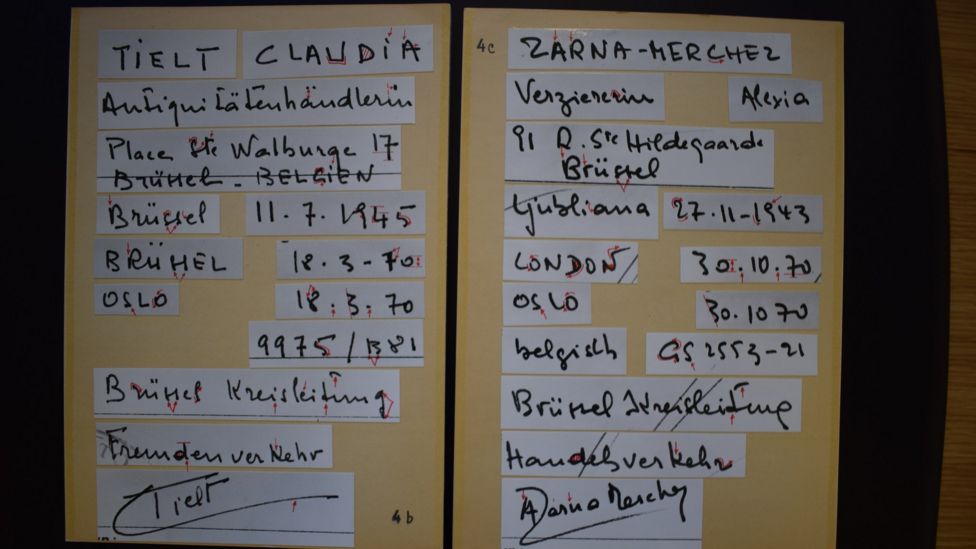 TIELT CLAUDIA
Antiquitätenhändlerin
Place Ste Walburge 17
BRÜSSEL - BELGIEN
Brüssel 11.7.1945
BRÜHEL 18.3-70
OSLO 18.3.70
9975/B81
Brüssel Kreisleitung
Fremdenverkehr
Tielt
4b
4c ZARNA-MERCHEZ
Verziererin Alexia
91 R. Ste Hildegaarde
Brüssel
Ljubliana 27-11-1943
LONDON 30.10.70
OSLO 30.10 70
belgisch GS 2553-21
Brüssel Kreisleitung
Handelsverkehr